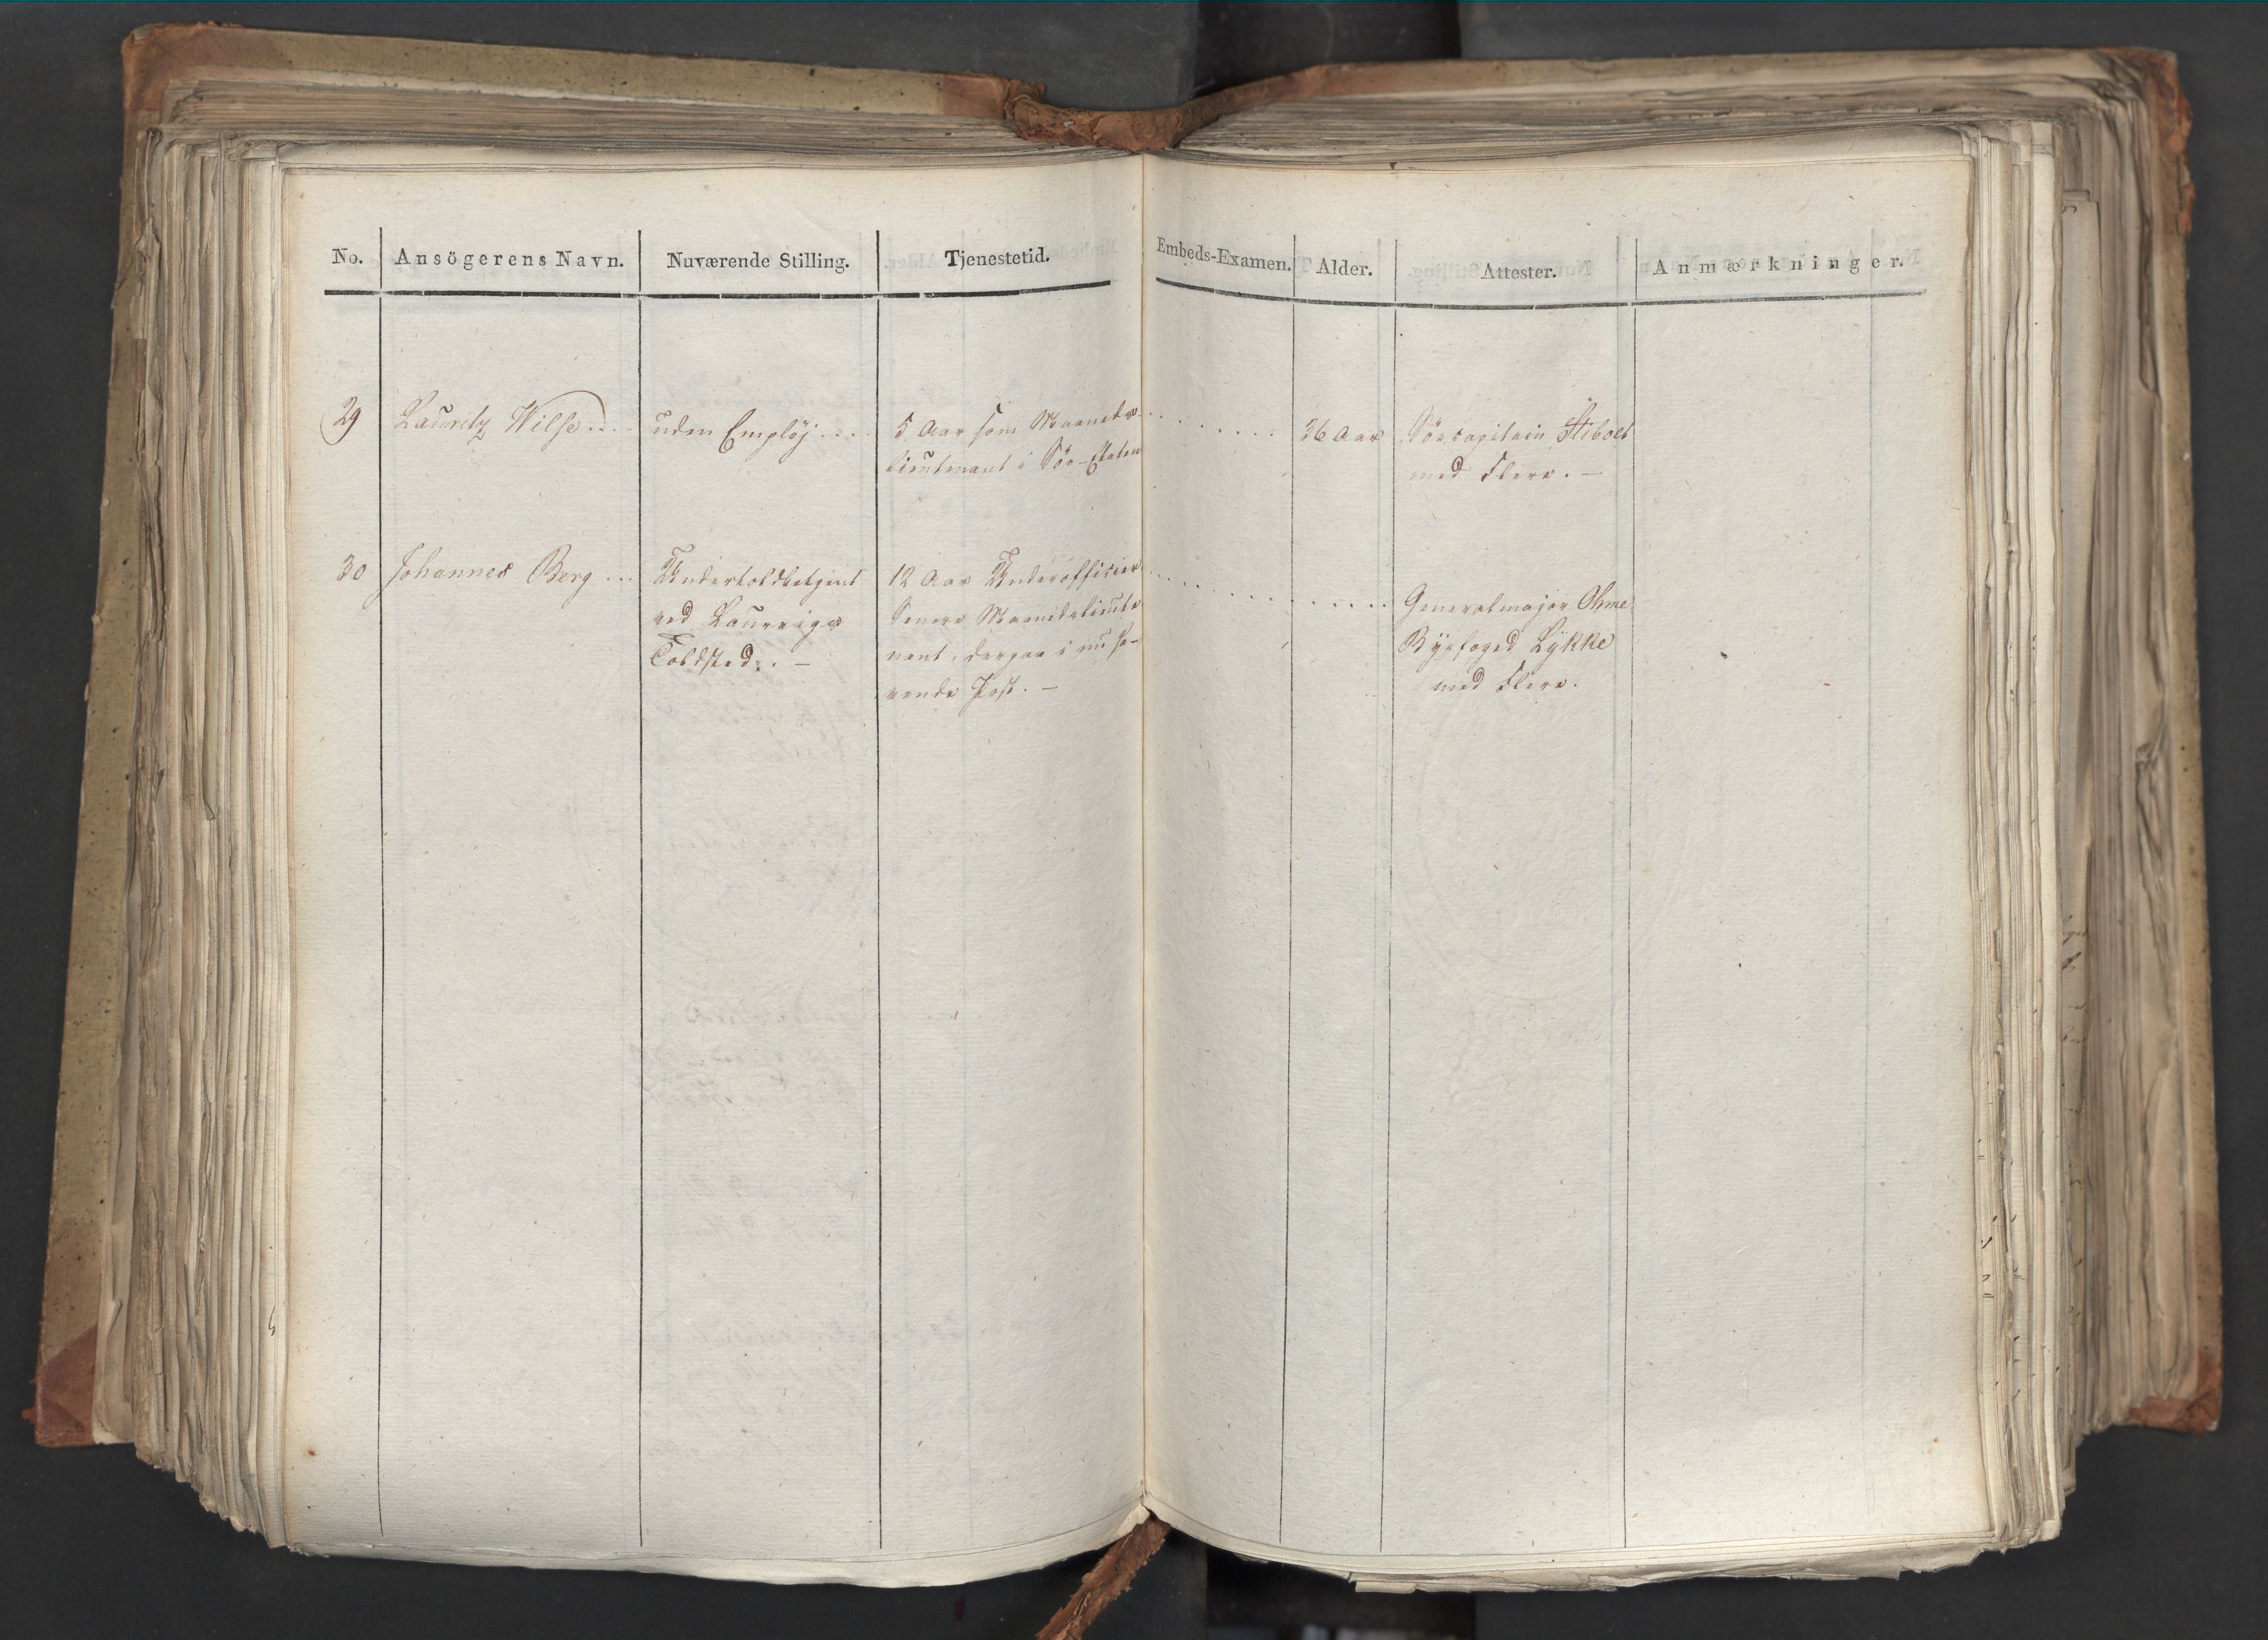 No. Ansögerens Navn. Nuværende Stilling. Tjenestetid. Embeds-Examen. Alder. Attester. Anmærkninger.
29 Lauritz Wilse .... uden Emplöj .... 5 Aar som Maaneds- ........ 36 Aar Söecapitain Stibolt
lieutnant i Söe-Etaten med Flere. —
30 Johannes Berg ... Undertoldbetjent 12 Aar Underofficier ............
ved Laurvigs Senere Maanedslieute Generalmajor Ohme
Toldsted. . — nant, derpaa i nu ha- Byefoged Lykke
vende Post. — med Flere.